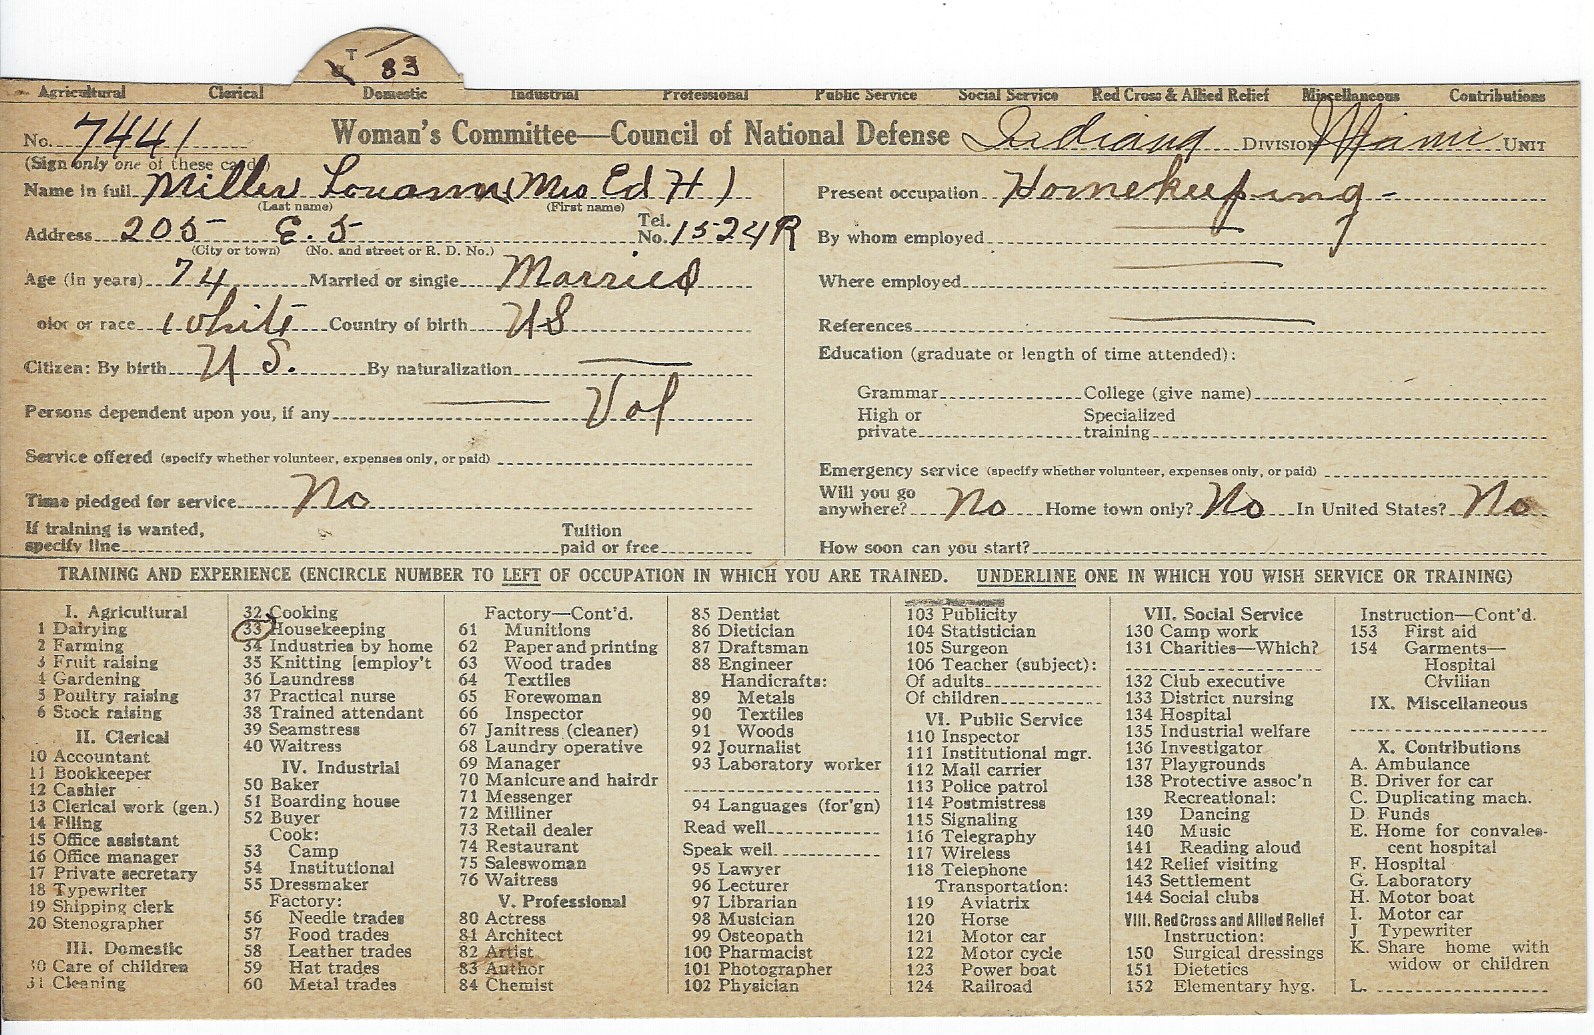 T 83
Agricultural Clerical Domestic Industrial Professional Public Service Social Service Red Cross & Allied Relief Miscellaneous Contributions
No. 7441 Woman's Committee—Council of National Defense Indiana DIVISION Miami UNIT
(Sign only one of these cards)
Name in full Miller Louann (Mrs Ed H)
(Last name) (First name)
Address 205 E. 5 Tel. No. 1524R
(City or town) (No. and street or R. D. No.)
Age (in years) 74 Married or single Married
olor or race White Country of birth US
Citizen: By birth U S. By naturalization
Persons dependent upon you, if any Vol
Service offered (specify whether volunteer, expenses only, or paid)
Time pledged for service No
If training is wanted, specify line Tuition paid or free
Present occupation Homekeeping-
By whom employed
Where employed
References
Education (graduate or length of time attended):
Grammar College (give name)
High or private Specialized training
Emergency service (specify whether volunteer, expenses only, or paid)
Will you go anywhere? No Home town only? No In United States? No
How soon can you start?
TRAINING AND EXPERIENCE (ENCIRCLE NUMBER TO LEFT OF OCCUPATION IN WHICH YOU ARE TRAINED. UNDERLINE ONE IN WHICH YOU WISH SERVICE OR TRAINING)
I. Agricultural
1 Dairying
2 Farming
3 Fruit raising
4 Gardening
5 Poultry raising
6 Stock raising
II. Clerical
10 Accountant
11 Bookkeeper
12 Cashier
13 Clerical work (gen.)
14 Filing
15 Office assistant
16 Office manager
17 Private secretary
18 Typewriter
19 Shipping clerk
20 Stenographer
III. Domestic
30 Care of children
31 Cleaning
32 Cooking
33 Housekeeping
34 Industries by home
35 Knitting [employ't
36 Laundress
37 Practical nurse
38 Trained attendant
39 Seamstress
40 Waitress
IV. Industrial
50 Baker
51 Boarding house
52 Buyer
Cook:
53 Camp
54 Institutional
55 Dressmaker
Factory:
56 Needle trades
57 Food trades
58 Leather trades
59 Hat trades
60 Metal trades
Factory—Cont'd.
61 Munitions
62 Paper and printing
63 Wood trades
64 Textiles
65 Forewoman
66 Inspector
67 Janitress (cleaner)
68 Laundry operative
69 Manager
70 Manicure and hairdr
71 Messenger
72 Milliner
73 Retail dealer
74 Restaurant
75 Saleswoman
76 Waitress
V. Professional
80 Actress
81 Architect
82 Artist
83 Author
84 Chemist
85 Dentist
86 Dietician
87 Draftsman
88 Engineer
Handicrafts:
89 Metals
90 Textiles
91 Woods
92 Journalist
93 Laboratory worker
94 Languages (for'gn)
Read well
Speak well
95 Lawyer
96 Lecturer
97 Librarian
98 Musician
99 Osteopath
100 Pharmacist
101 Photographer
102 Physician
103 Publicity
104 Statistician
105 Surgeon
106 Teacher (subject):
Of adults
Of children
VI. Public Service
110 Inspector
111 Institutional mgr.
112 Mail carrier
113 Police patrol
114 Postmistress
115 Signaling
116 Telegraphy
117 Wireless
118 Telephone
Transportation:
119 Aviatrix
120 Horse
121 Motor car
122 Motor cycle
123 Power boat
124 Railroad
VII. Social Service
130 Camp work
131 Charities—Which?
132 Club executive
133 District nursing
134 Hospital
135 Industrial welfare
136 Investigator
137 Playgrounds
138 Protective assoc'n
Recreational:
139 Dancing
140 Music
141 Reading aloud
142 Relief visiting
143 Settlement
144 Social clubs
VIII. Red Cross and Allied Relief
Instruction:
150 Surgical dressings
151 Dietetics
152 Elementary hyg.
Instruction—Cont'd.
153 First aid
154 Garments—
Hospital
Civilian
IX. Miscellaneous
X. Contributions
A. Ambulance
B. Driver for car
C. Duplicating mach.
D. Funds
E. Home for convales-
cent hospital
F. Hospital
G. Laboratory
H. Motor boat
I. Motor car
J Typewriter
K. Share home with
widow or children
L.